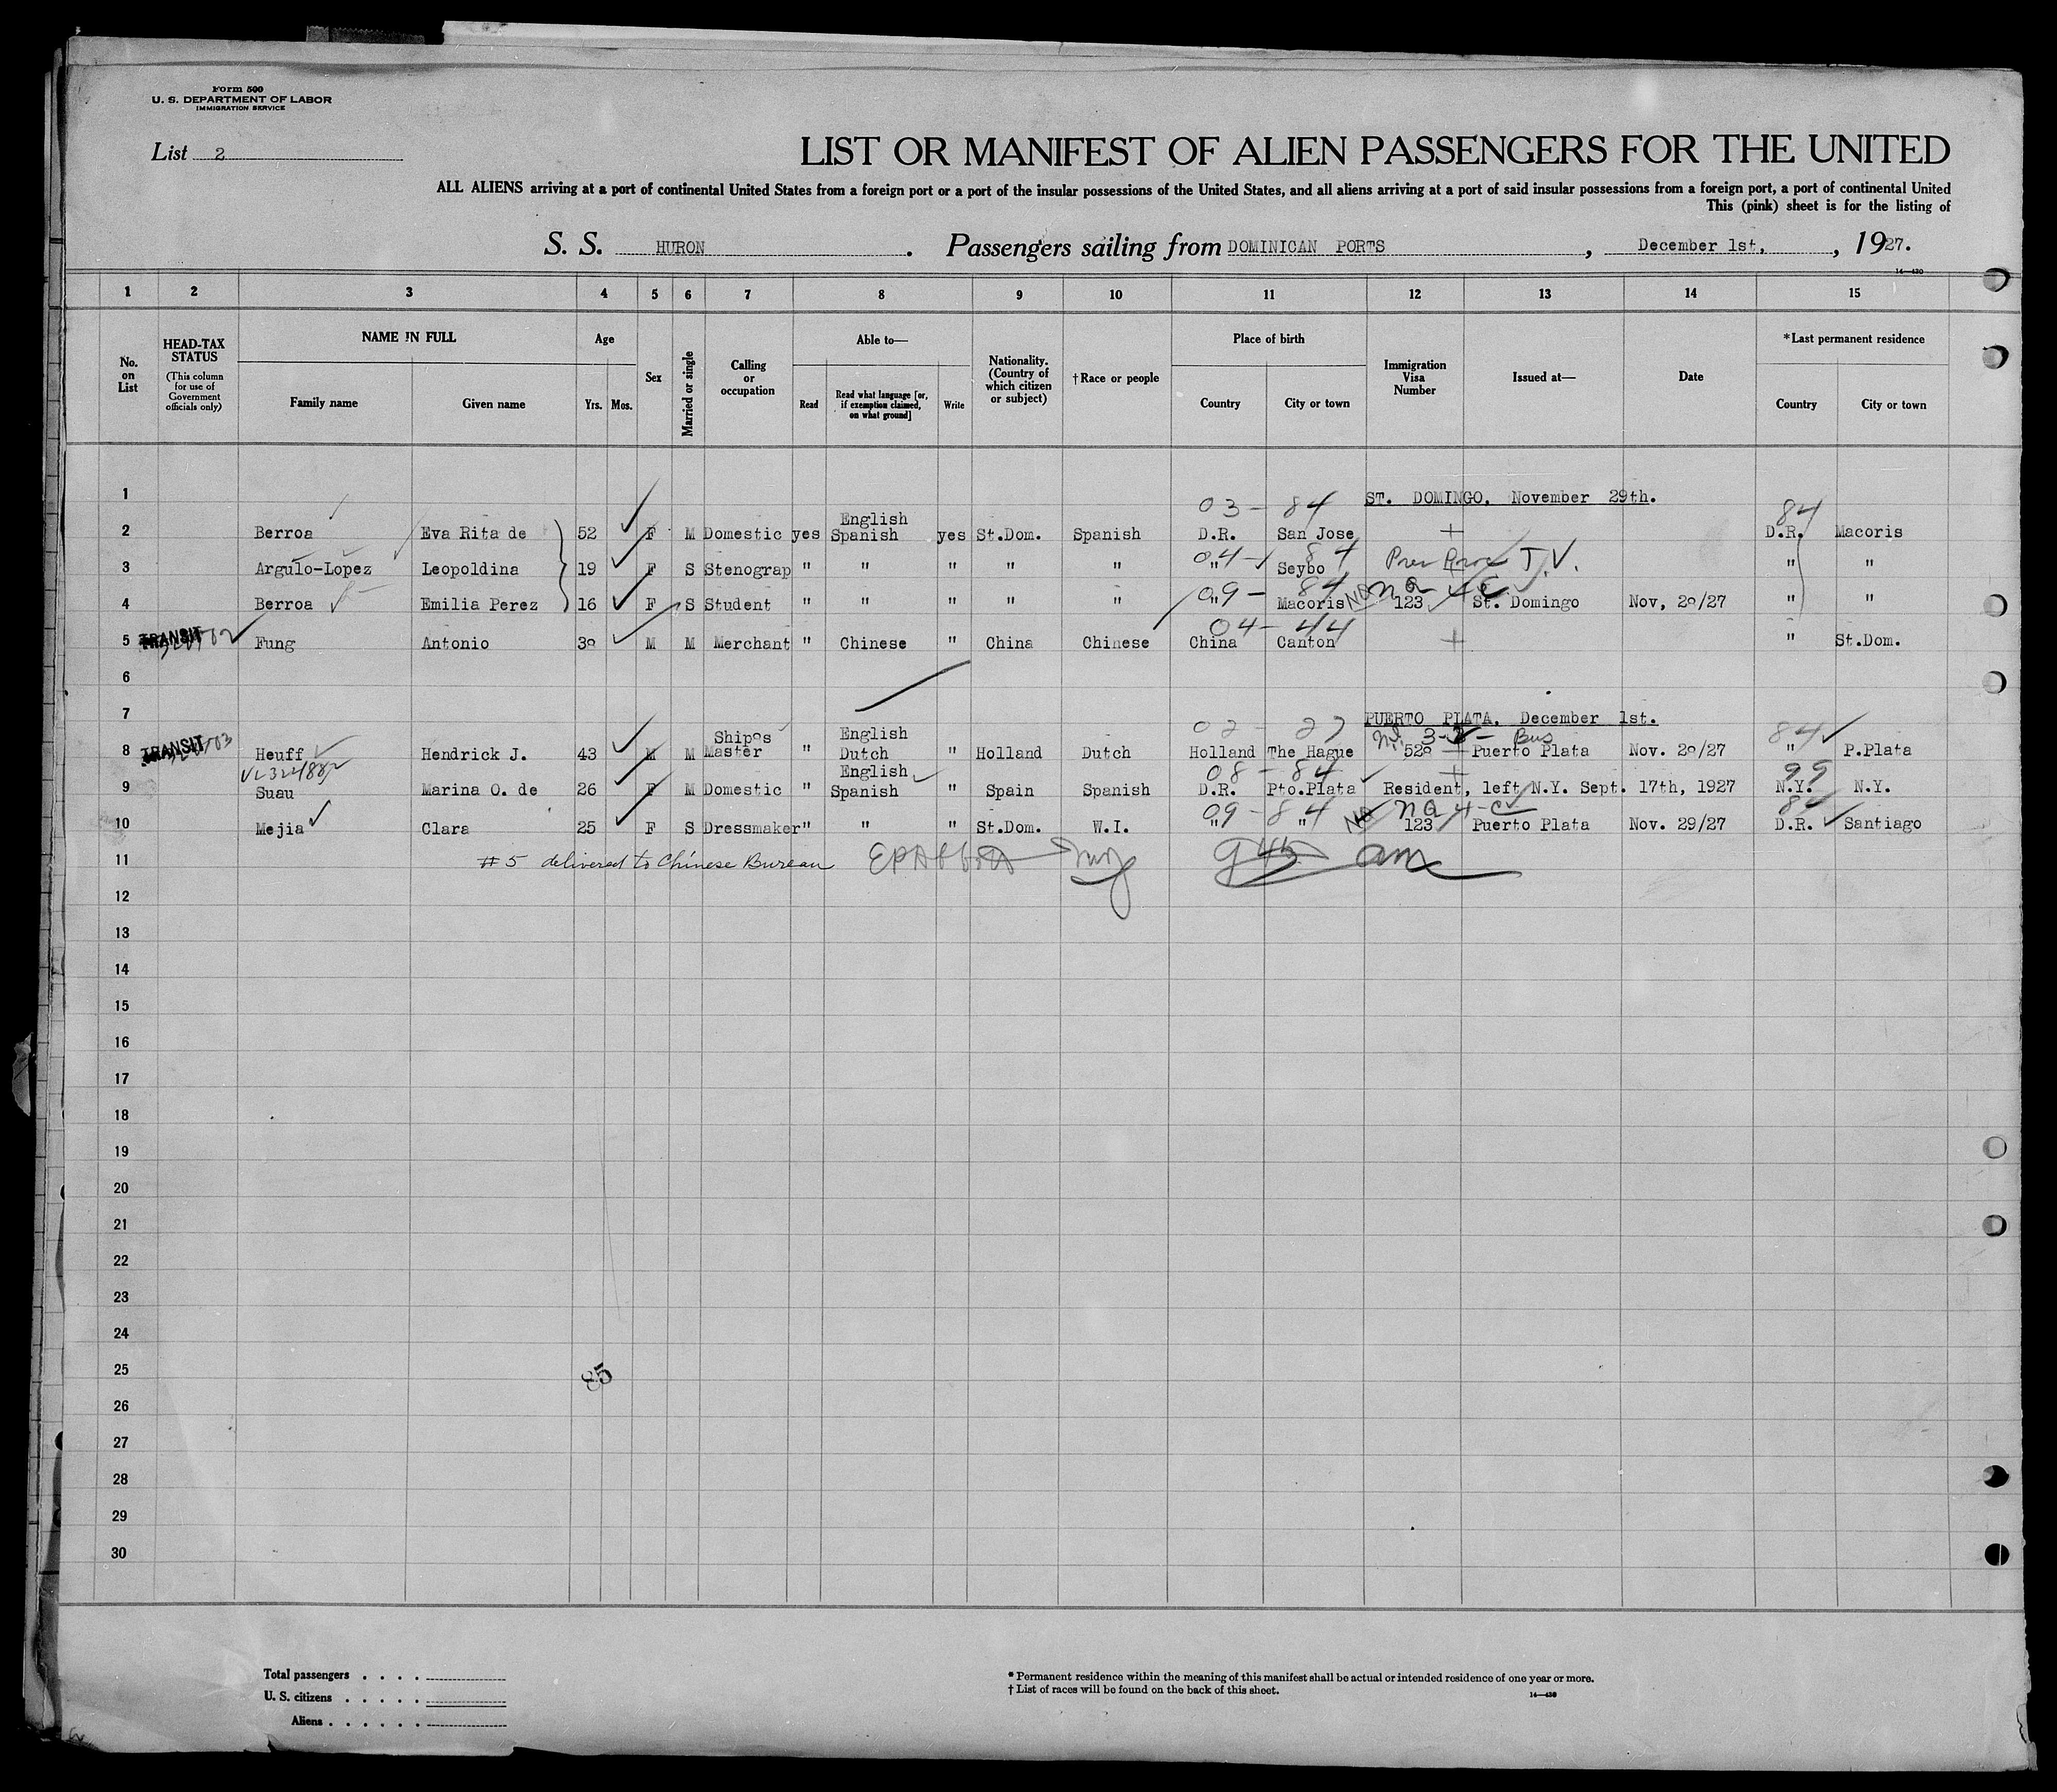 Form 500
U. S. DEPARTMENT OF LABOR
IMMIGRATION SERVICE
List 2
LIST OR MANIFEST OF ALIEN PASSENGERS FOR THE UNITED
ALL ALIENS arriving at a port of continental United States from a foreign port or a port of the insular possessions of the United States, and all aliens arriving at a port of said insular possessions from a foreign port, a port of continental United
This (pink) sheet is for the listing of
S. S. HURON . Passengers sailing from DOMINICAN PORTS , December 1st, , 1927.
14—430
1 2 3 4 5 6 7 8 9 10 11 12 13 14 15
No. on List
HEAD-TAX STATUS (This column for use of Government officials only)
NAME IN FULL
Family name Given name
Age
Yrs. Mos.
Sex
Married or single
Calling or occupation
Able to—
Read Read what language [or, if exemption claimed, on what ground] Write
Nationality. (Country of which citizen or subject)
†Race or people
Place of birth
Country City or town
Immigration Visa Number
Issued at—
Date
*Last permanent residence
Country City or town
1 ST. DOMINGO, November 29th.
03 - 84 84
2 Berroa Eva Rita de 52 F M Domestic yes English Spanish yes St.Dom. Spanish D.R. San Jose D.R. Macoris
04 - 84 T.V.
3 Argulo-Lopez Leopoldina 19 F S Stenograp " " " " " " Seybo " "
09 - 84 NQ 4C
4 Berroa Emilia Perez 16 F S Student " " " " " " Macoris 123 St. Domingo Nov, 29/27 " "
04 - 44
5 TRANSIT Fung Antonio 39 M M Merchant " Chinese " China Chinese China Canton " St.Dom.
6
7 PUERTO PLATA, December 1st.
02 - 27 3-2- Bus 84
8 TRANSIT Heuff Hendrick J. 43 M M Ships Master " English Dutch " Holland Dutch Holland The Hague 529 Puerto Plata Nov. 29/27 " P.Plata
08 - 84 99
9 Suau Marina O. de 26 F M Domestic " English Spanish " Spain Spanish D.R. Pto.Plata Resident, left N.Y. Sept. 17th, 1927 N.Y. N.Y.
09 - 84 NQ 4-C 84
10 Mejia Clara 25 F S Dressmaker " " " St.Dom. W.I. " " 123 Puerto Plata Nov. 29/27 D.R. Santiago
11 #5 delivered to Chinese Bureau 945 am
12
13
14
15
16
17
18
19
20
21
22
23
24
25
85
26
27
28
29
30
Total passengers . . . .
U. S. citizens . . . . .
Aliens . . . . . .
* Permanent residence within the meaning of this manifest shall be actual or intended residence of one year or more.
† List of races will be found on the back of this sheet.
14—430